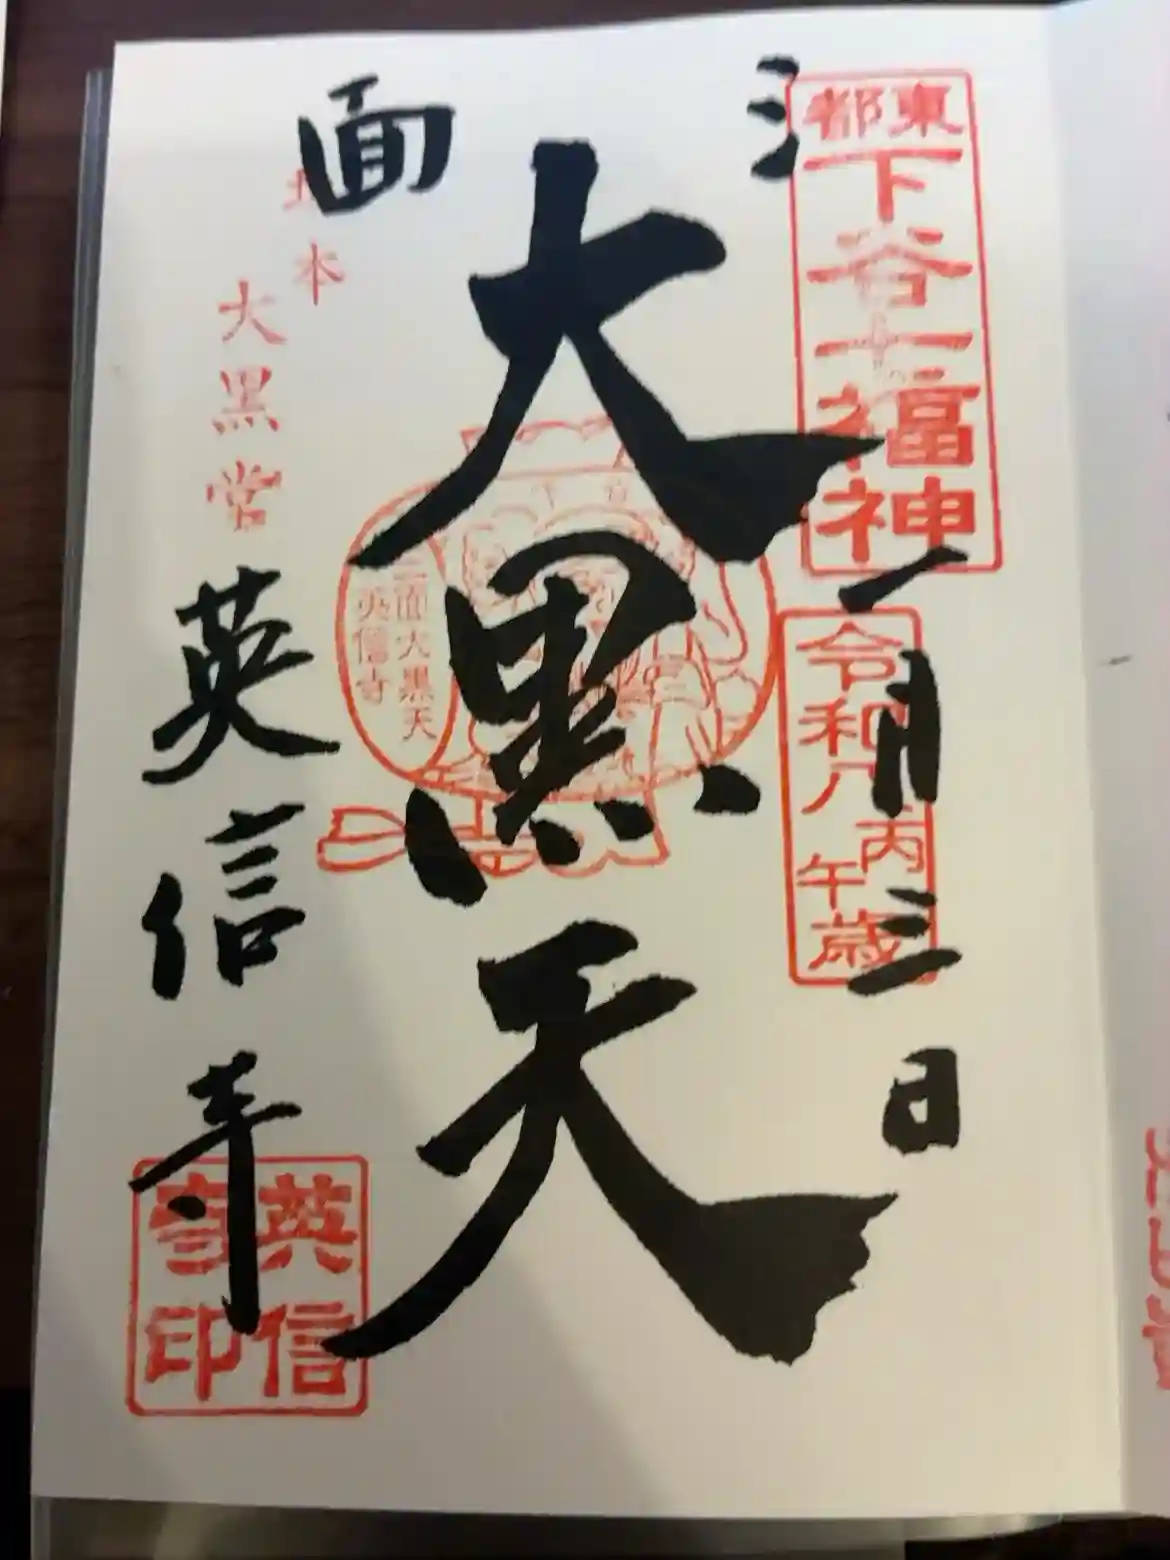 東都
下谷七福神
令和八丙午歳
一月三日
三面
大黒天
三面大黒天
英信寺
坂本
大黒堂
英信寺
英信寺印